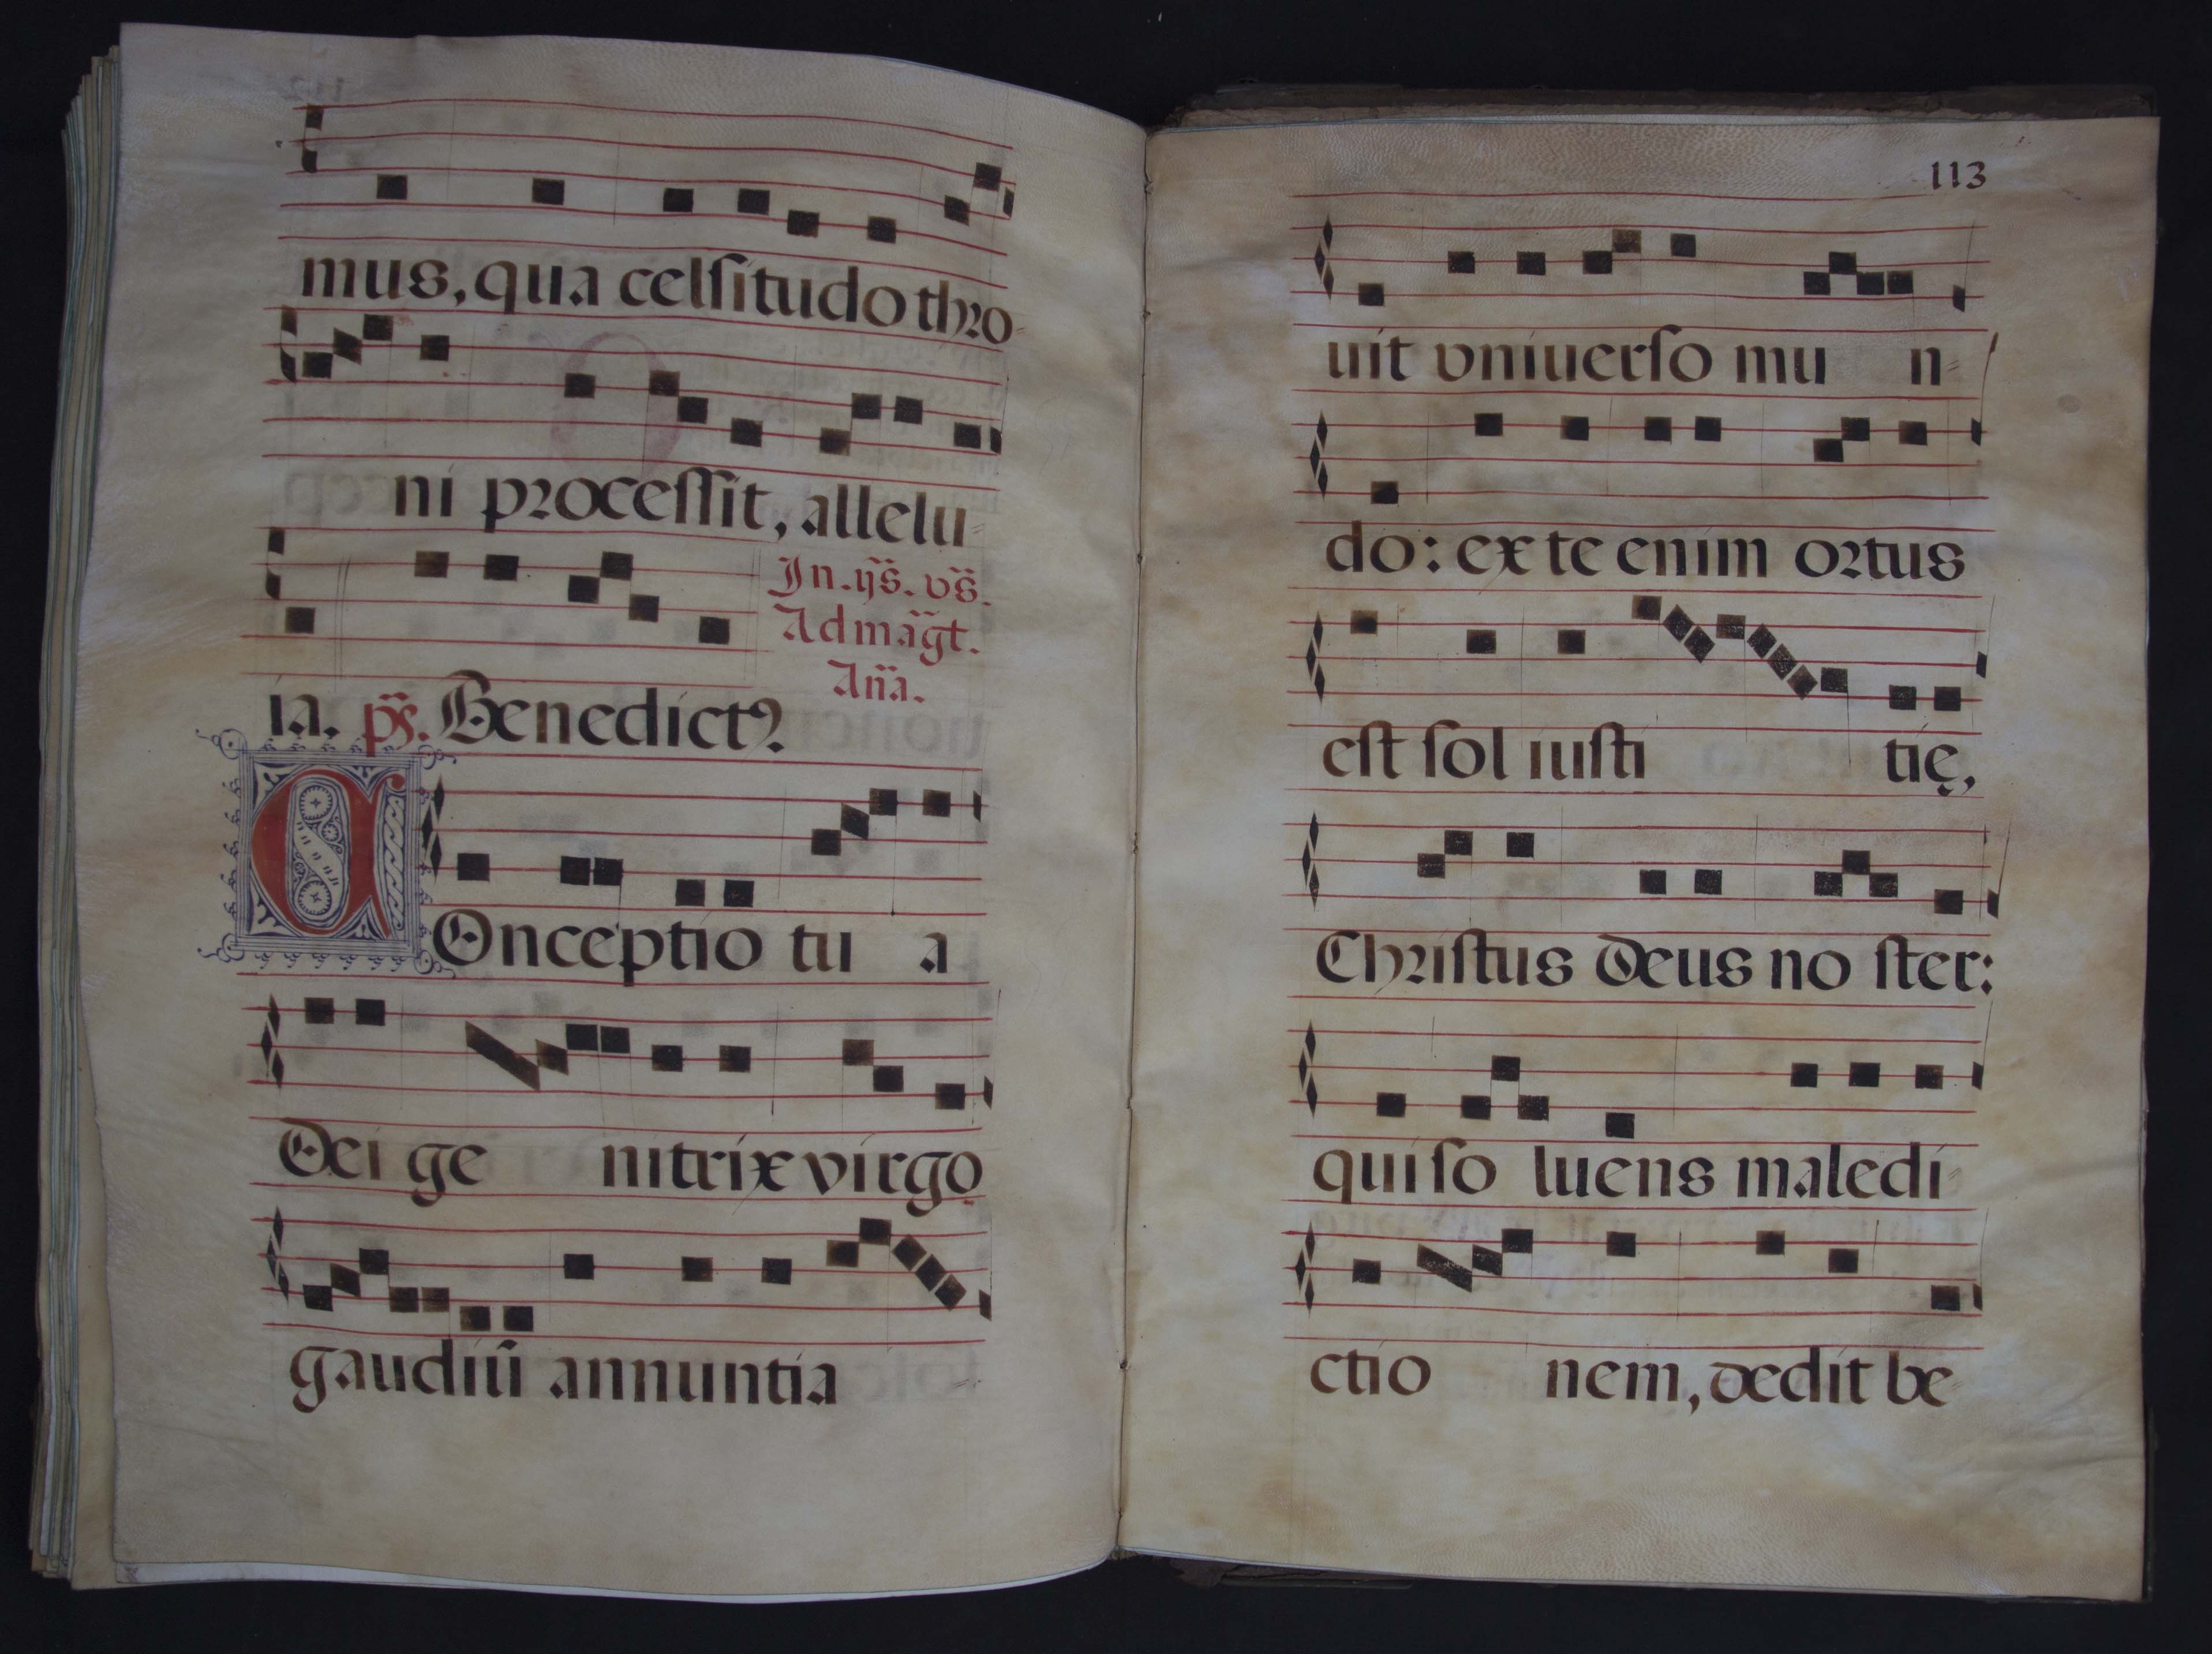 mus, qua celſitudo thro
ni proceſſit, allelu
ia. ps̃. Benedictꝰ.
In .ijs̃. vs̃.
Ad mag̃t.
Añа.
COnceptio tu a
Dei ge nitrix virgo
gaudiũ annuntia
113
uit vniuerſo mu n
do: ex te enim ortus
eſt ſol iuſti tię,
Chriſtus Deus no ſter:
qui ſo luens maledi
ctio nem, dedit be